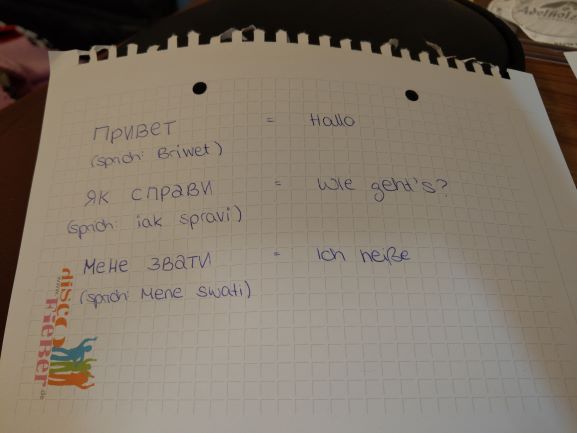 Привет = Hallo
(sprich: Briwet)
як справи = wie geht's?
(sprich: iak spravi)
мене звати = ich heiße
(sprich: Mene swati)
disco
FieBer
.de
Adelholz